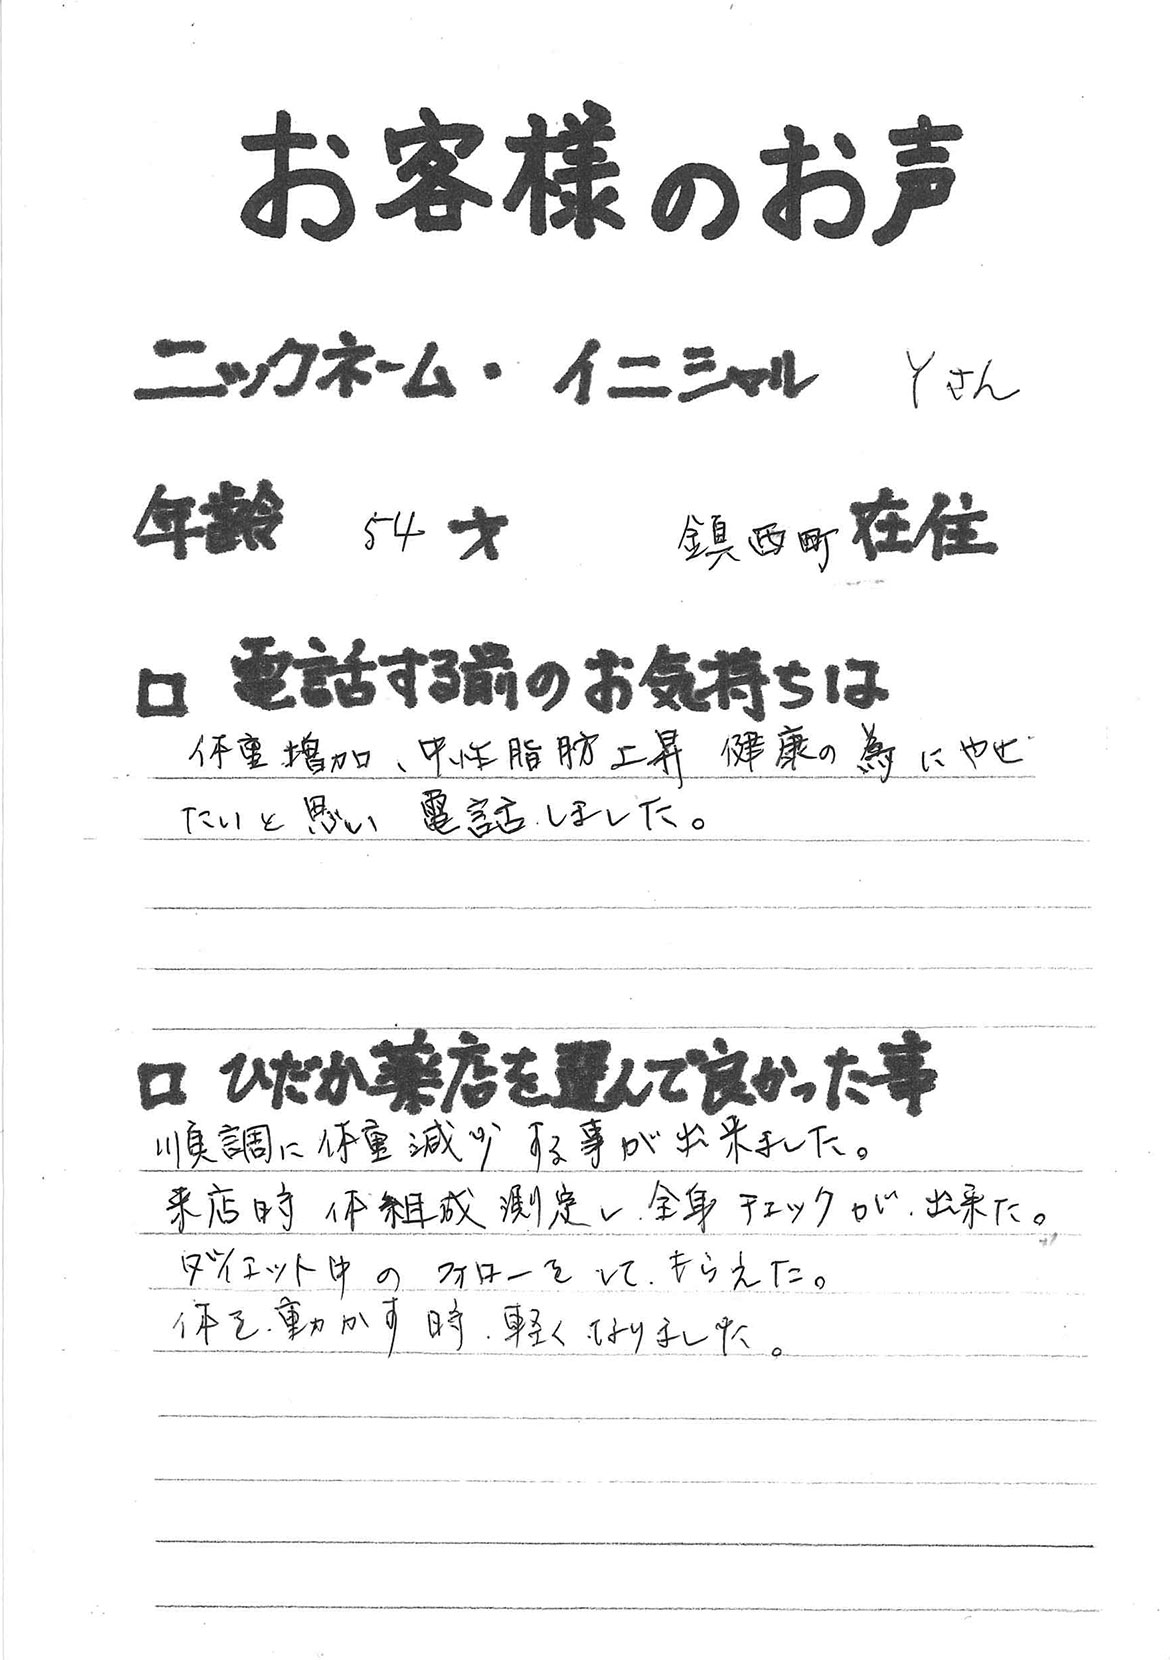 お客様のお声
ニックネーム・イニシャル Yさん
年齢 54 才 鎮西町 在住
□ 電話する前のお気持ちは
体重増加、中性脂肪上昇 健康の為にやせ
たいと思い 電話しました。
□ ひだか薬店を選んで良かった事
順調に体重減少する事が出来ました。
来店時 体組成測定し、全身チェックが、出来た。
ダイエット中の フォローをして、もらえた。
体を、動かす時、軽くなりました。